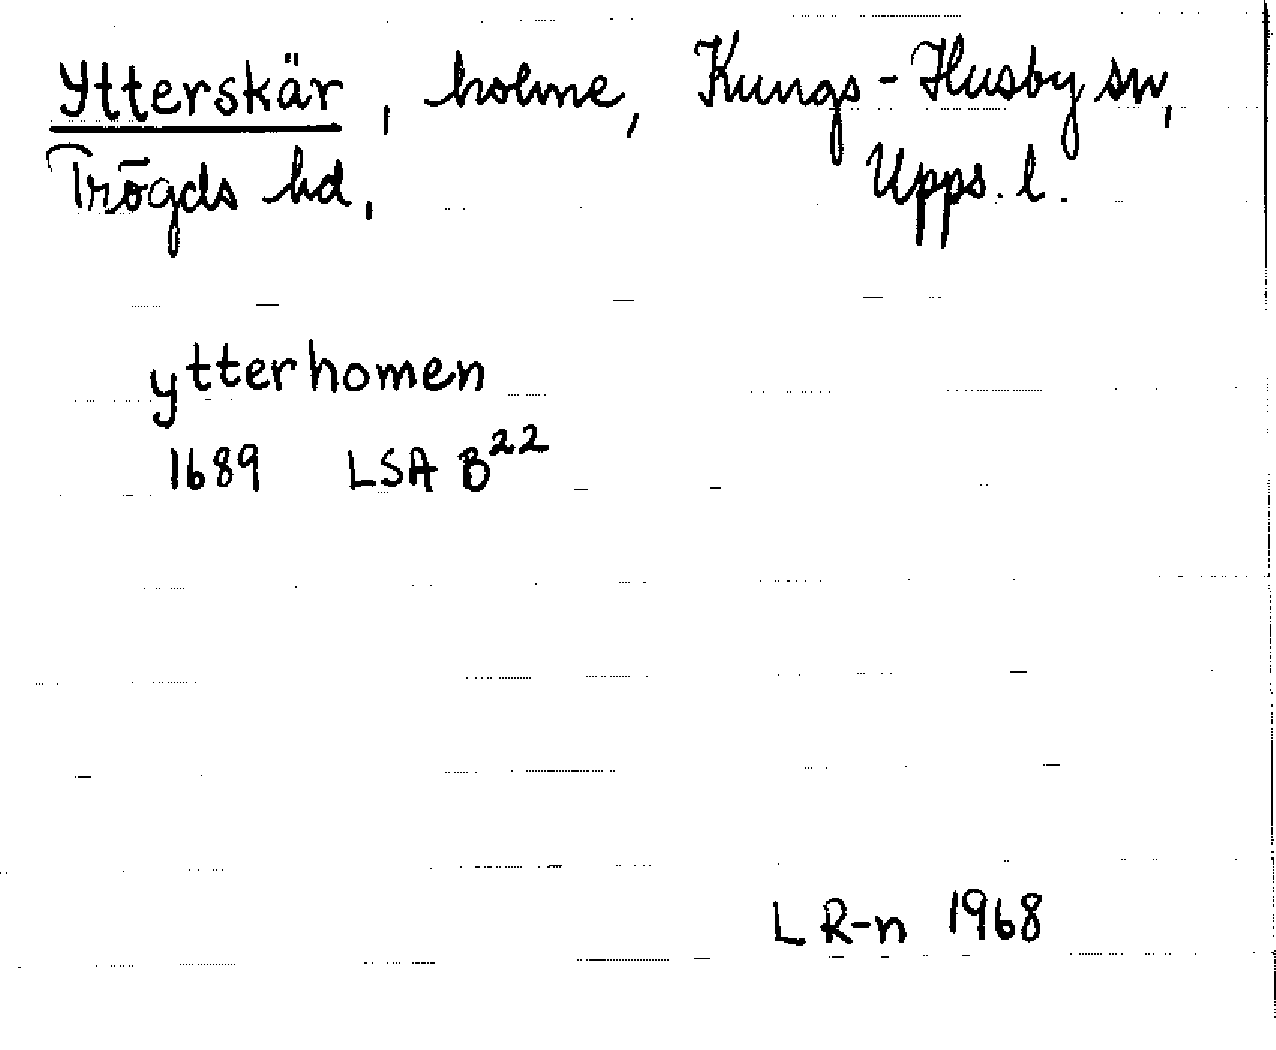 Ytterskär, holme, Kungs-Husby sn,
Trögds hd, Upps. l.
ytterhomen
1689 LSA B22
L R-n 1968